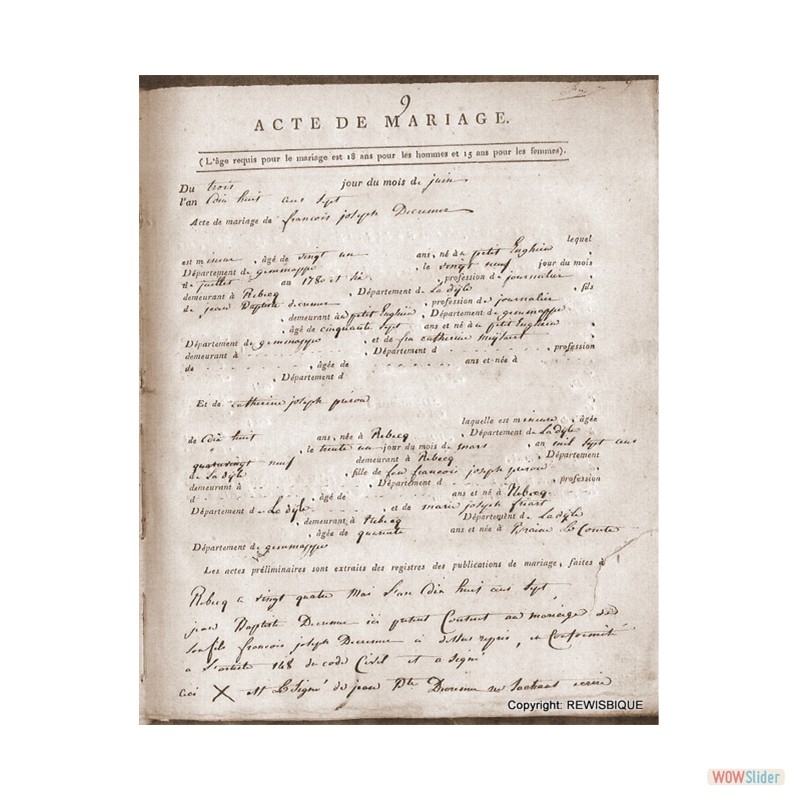 9
ACTE DE MARIAGE.
(L'âge requis pour le mariage est 18 ans pour les hommes et 15 ans pour les femmes).
Du trois jour du mois de juin
l'an dix huit cent sept
Acte de mariage de françois joseph
lequel
est mineur, âgé de vingt un ans, né à petit Enghien
Département de gemmappe, le vingt neuf jour du mois
de juillet an 1780 et six, profession de journalier,
demeurant à Rebecq, Département de La dyle, fils
de jean Baptiste, profession de journalier,
, demeurant à petit Enghien, Département de gemmappe
, âgé de cinquante sept ans et né à petit Enghien,
Département de gemmappe, et de feu catherine
demeurant à, Département d, profession
de, âgée de ans et née à
, Département d
Et de catherine joseph
laquelle est mineure, âgée
de dix huit ans, née à Rebecq, Département de La dyle
, le trente un jour du mois de mars, an mil sept cent
quatrevingt neuf demeurant à Rebecq, Département
de La dyle, fille de feu françois joseph
demeurant à, Département d, profession
d, âgé de ans et né à Rebecq
Département de La dyle, et de marie joseph
, demeurant à Rebecq Département de La dyle
, âgée de quarante ans et née à Braine Le Comte
Département de gemmappe
Les actes préliminaires sont extraits des registres des publications de mariage, faites à
Rebecq le vingt quatre Mai l'an dix huit cent sept
jean Baptiste ici présent Consent au mariage de
son fils françois joseph à dessus repris, en Conformité
a l'article 148 du code Civil et a signé
ceci X est Le Signé de jean Bte ne Sachant écrire
Copyright: REWISBIQUE
WOWSlider